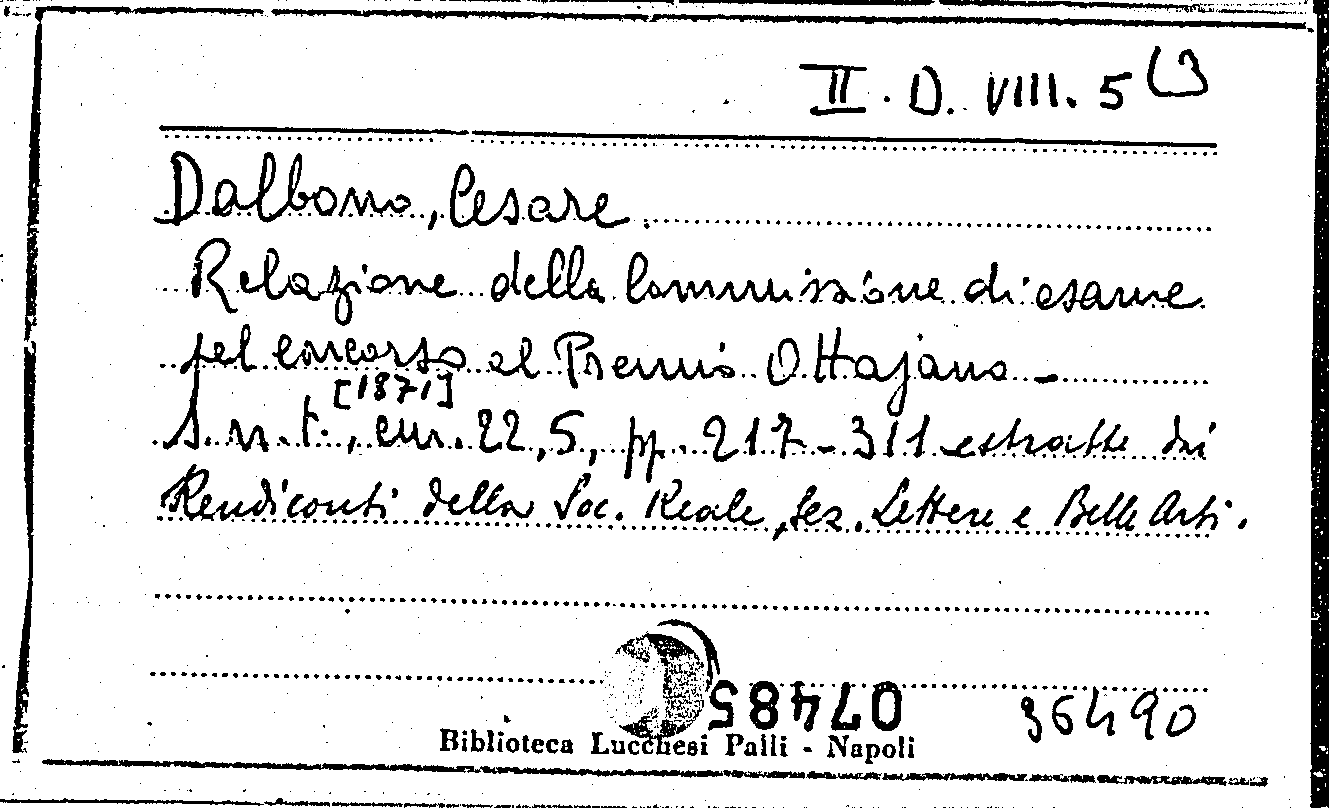 II. D. VIII. 5 (3
Dalbono, Cesare
Relazione della Commissione di esame
pel concorso al Premio Ottajano -
[1871]
S.n.t., cm. 22,5, pp. 217-311 estratte dai
Rendiconti della Soc. Reale, Sez. Lettere e Belle Arti.
07485
36490
Biblioteca Lucchesi Palli - Napoli